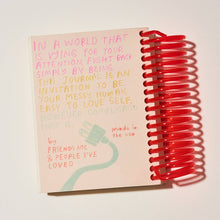 IN A WORLD THAT
IS VYING FOR YOUR
ATTENTION, FIGHT BACK
SIMPLY BY BEING.
THE JOURNAL IS AN
INVITATION TO BE
YOUR MESSY, HUMAN,
EASY TO LOVE SELF.
HOWEVER COMPLICATED
THAT IS
made in
the usa
by
FRIENDS, INC
& PEOPLE I'VE
LOVED